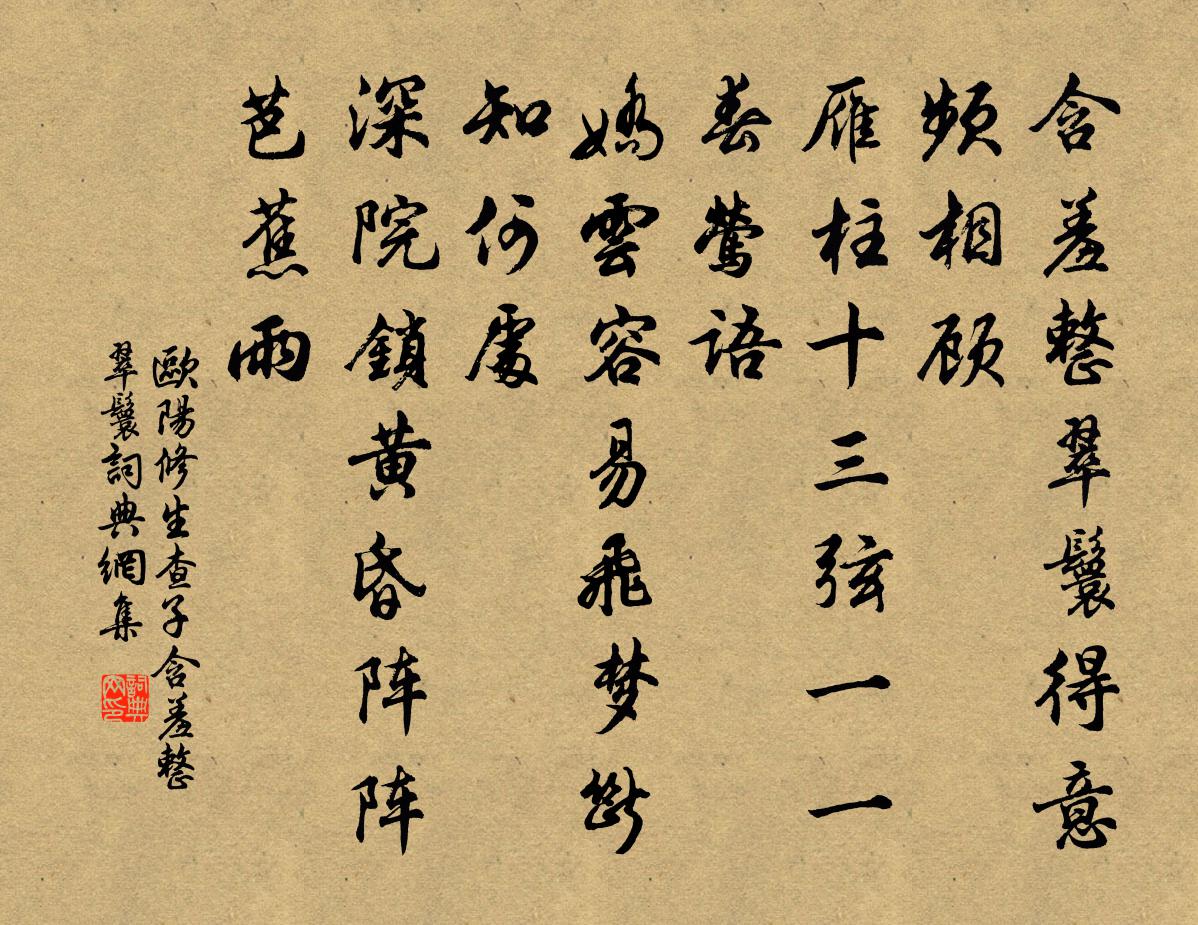 含羞整翠鬟得意
频相顾
雁柱十三弦一一
春莺语
嬌雲容易飛梦斷
知何處
深院鎖黄昏阵阵
芭蕉雨
歐陽修生查子含羞整
翠鬟詞典網集
詞典
网印